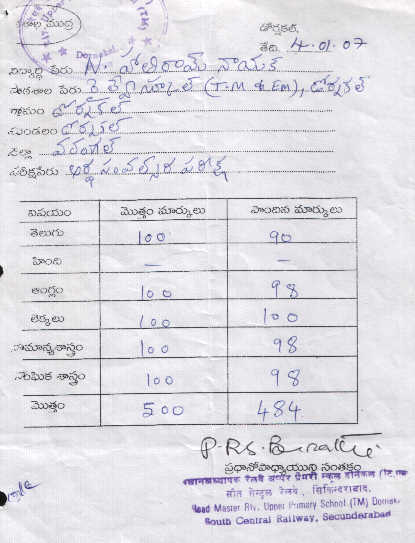 పాఠశాల ముద్ర
Dornakal.
(TM)
డోర్నకల్,
తేది. 4-01-07
విద్యార్థి పేరు N. హతిరామ్ నాయక్
పాఠశాల పేరు రైల్వే స్కూల్ (T.M & EM), డోర్నకల్
గ్రామం డోర్నకల్
మండలం డోర్నకల్
జిల్లా వరంగల్
పరీక్షపేరు అర్థ సంవత్సర పరీక్ష
విషయం మొత్తం మార్కులు పొందిన మార్కులు
తెలుగు 100 90
హింది — —
ఆంగ్లం 100 98
లెక్కలు 100 100
సామాన్యశాస్త్రం 100 98
సాంఘిక శాస్త్రం 100 98
మొత్తం 500 484
ప్రధానోపాధ్యాయుని సంతకం
प्रधानाध्यापक रेलवे अप्पर प्रैमरी स्कूल
सौत सेन्ट्रल रेलवे, सिकिन्दराबाद.
Head Master Rly. Upper Primary School (TM) Dornakal
South Central Railway, Secunderabad